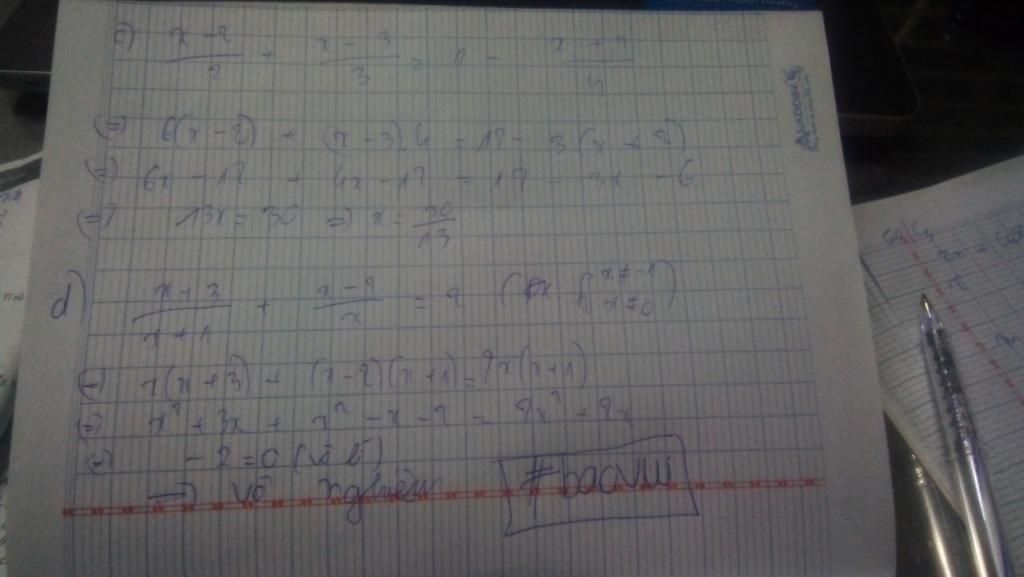 c) x-2/2 + x-3/3 = 1 - x+2/4
(=) 6(x-2) + (x-3).4 = 12 - 3(x+2)
(=) 6x - 12 + 4x - 12 = 12 - 3x - 6
(=) 13x = 30 => x = 30/13
d) x+3/x+1 + x-2/x = 2 (Đk { x ≠ -1 x ≠ 0 )
(=) x(x+3) + (x-2)(x+1) = 2x(x+1)
(=) x² + 3x + x² - x - 2 = 2x² + 2x
(=) -2 = 0 (vô lí)
=> vô nghiệm
#baovui
ALADDIN